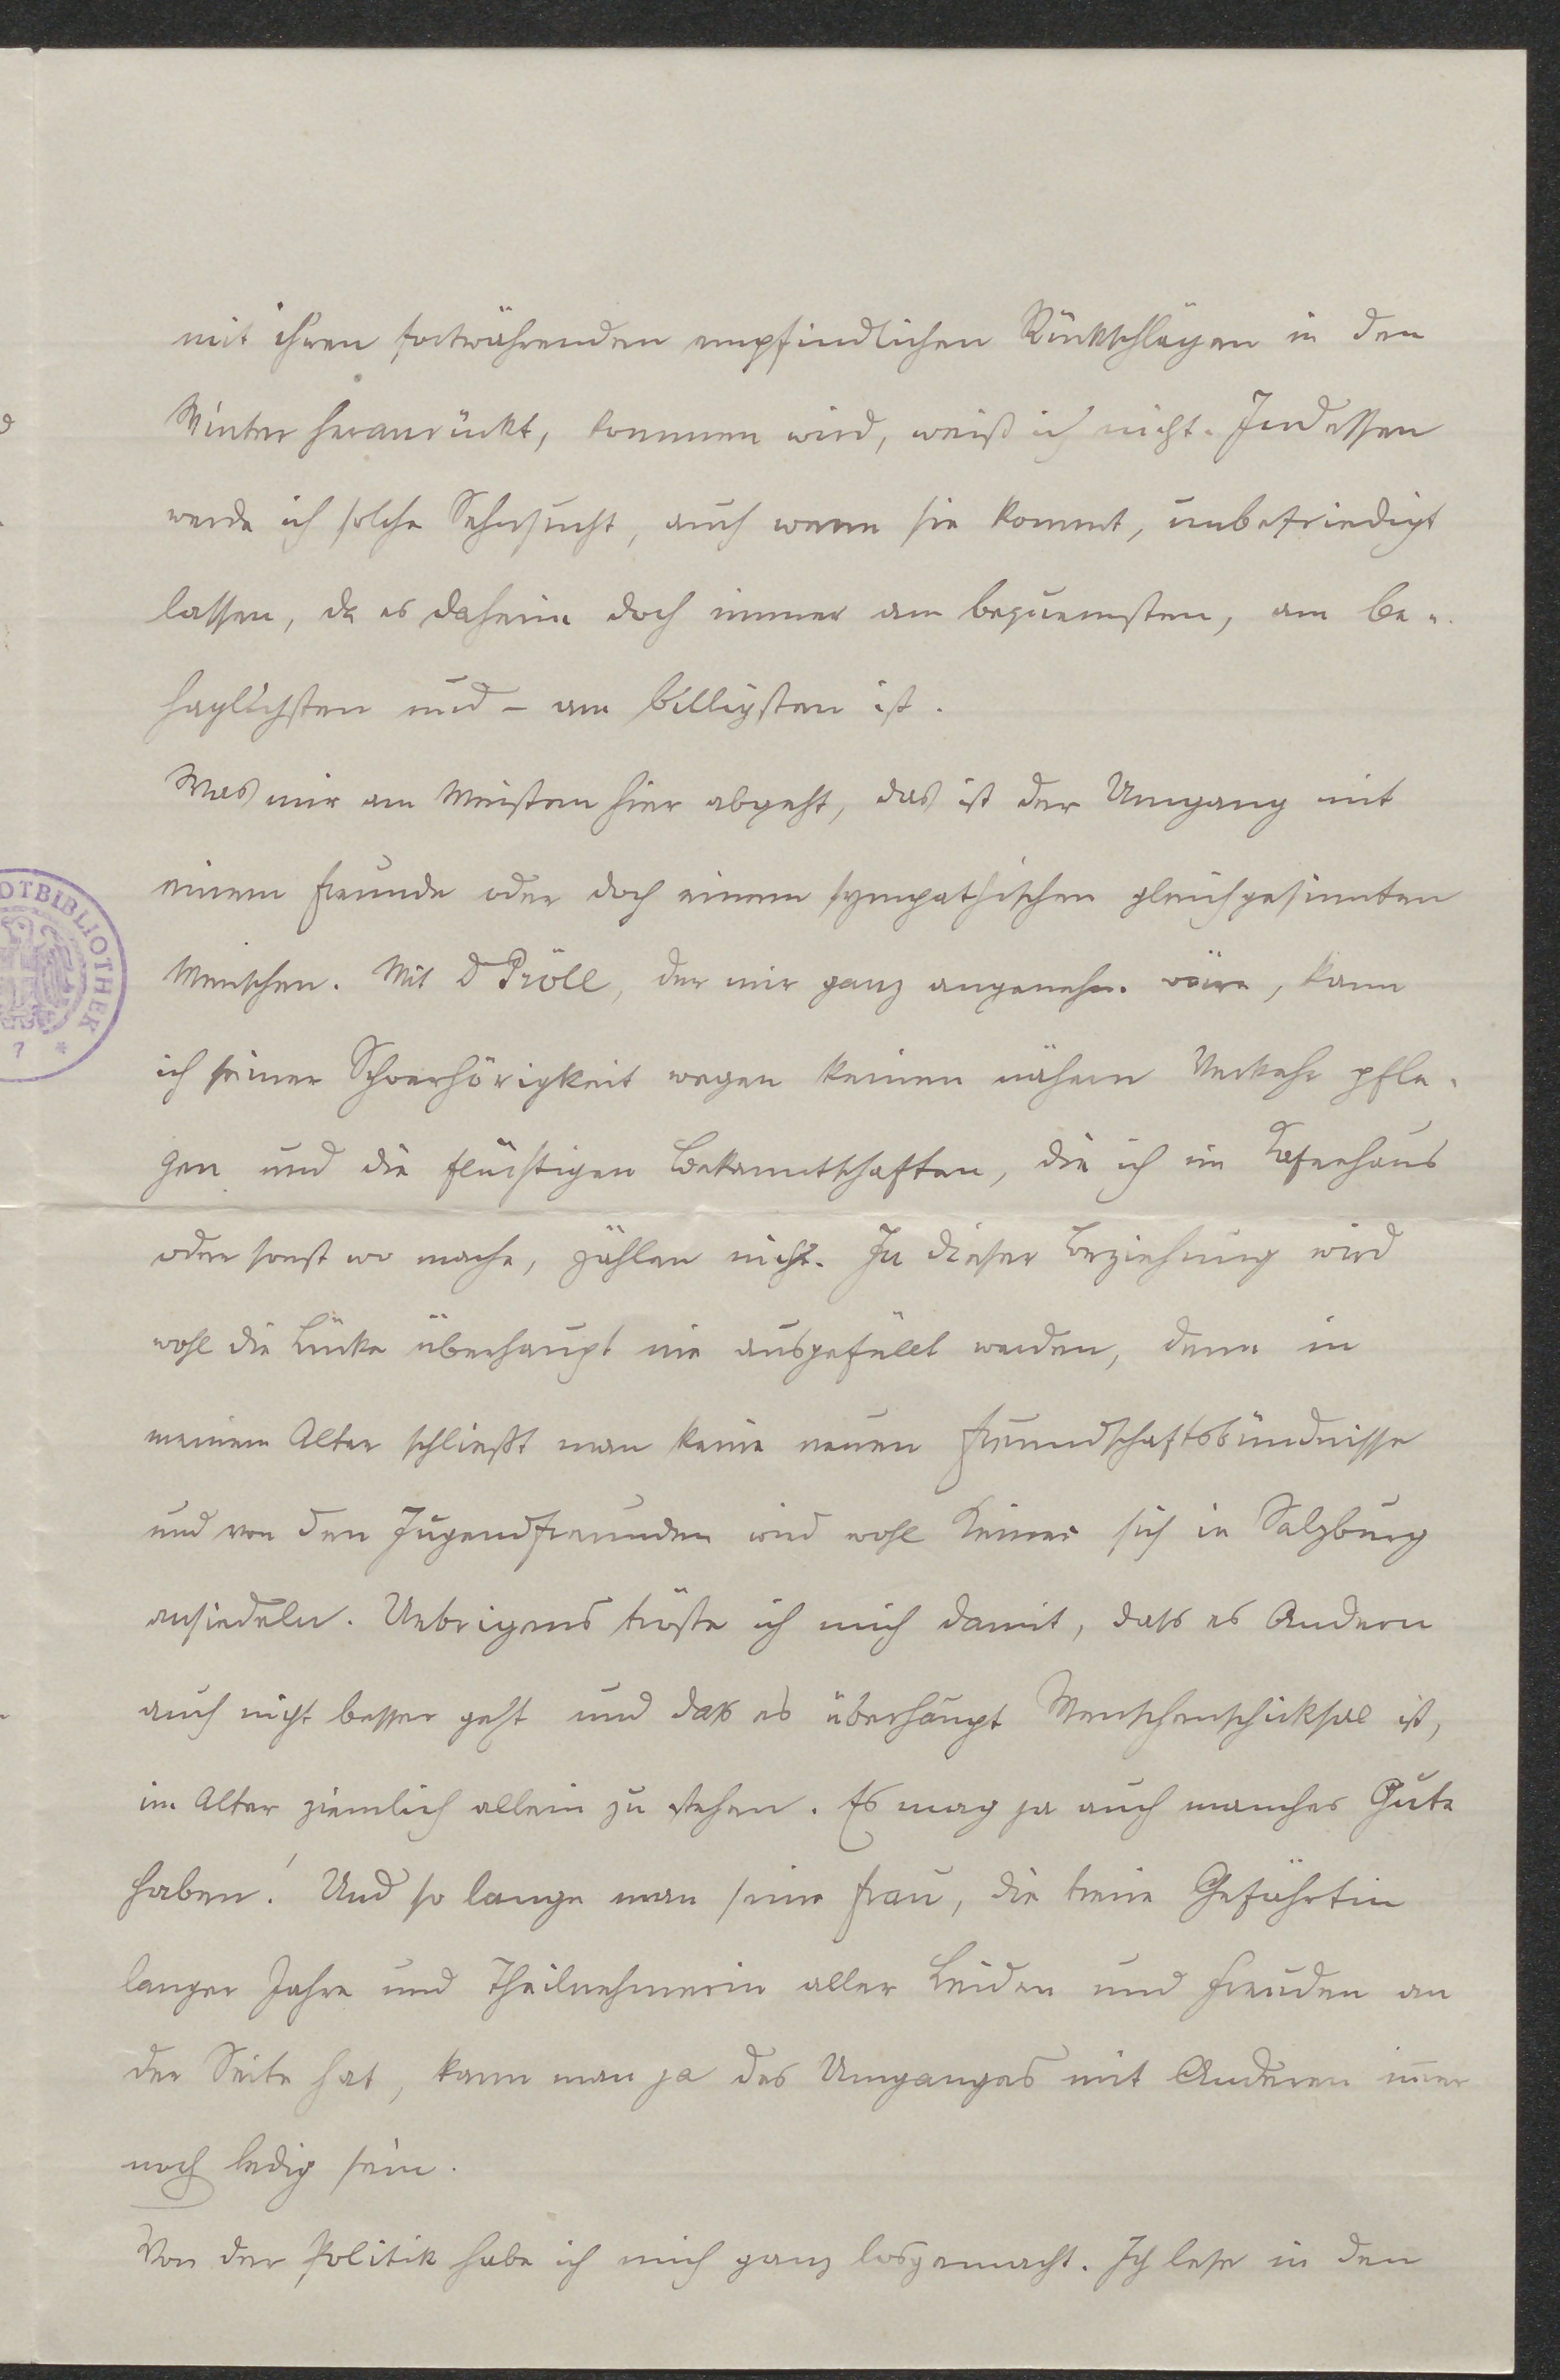 mit ihren fortwährenden empfindlichen Rückschlägen in den
Winter heranrückt, kommen wird, weiß ich nicht. Indessen
werde ich solche Sehnsucht, auch wenn sie kommt, unbefriedigt
lassen, da es daheim doch immer am bequemsten, am be-
haglichsten und – am billigsten ist.
Was mir am Meisten hier abgeht, das ist der Umgang mit
einem Freunde oder doch einem sympathischen gleichgesinnten
Menschen. Mit D Pröll, der mir ganz angenehm wäre, kann
ich seiner Schwerhörigkeit wegen keinen nähern Verkehr pfle-
gen und die flüchtigen Bekanntschaften, die ich im Kafeehaus
oder sonst wo mache, zählen nicht. In dieser Beziehung wird
wohl die Lücke überhaupt nie ausgefüllt werden, denn in
meinem Alter schließt man keine neuen Freundschaftsbündnisse
und von den Jugendfreunden wird wohl Keiner sich in Salzburg
ansiedeln. Uebrigens tröste ich mich damit, dass es Andern
auch nicht besser geht und dass es überhaupt Menschenschicksal ist,
im Alter ziemlich allein zu stehen. Es mag ja auch manches Gute
haben! Und so lange man seine Frau, die treue Gefährtin
langer Jahre und Theilnehmerin aller Leiden und Freuden an
der Seite hat, kann man ja des Umganges mit Anderen im̅er
noch ledig sein.
Von der Politik habe ich mich ganz losgemacht. Ich lese in den
DTBIBLIOTHEK
7 *